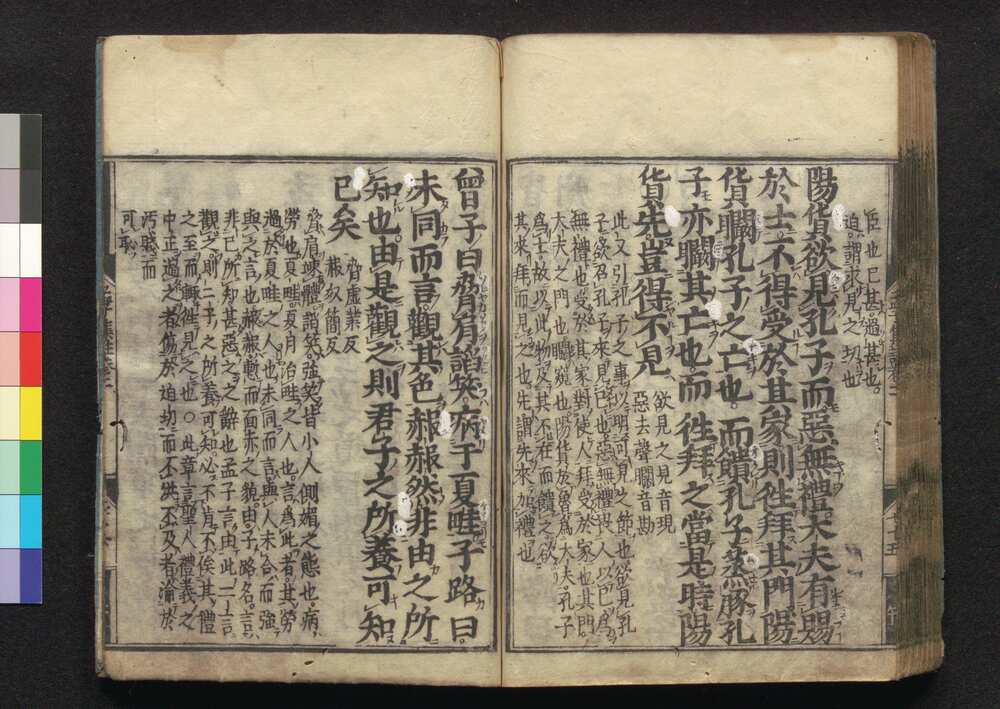 臣也已甚過甚也
迫謂求見之切也
陽貨欲見孔子而惡無禮大夫有賜
於士不得受於其家則往拜其門陽
貨矙孔子之亡也而饋孔子蒸豚孔
子亦矙其亡也而往拜之當是時陽
貨先豈得不見
欲見之見音現
惡去聲矙音勘
此又引孔子之事以明可見之節也欲見孔
子欲召孔子來見己也惡無禮畏人以己爲
無禮也受於其家對使人拜受於家也其門
大夫之門也矙窺也陽貨於魯爲大夫孔子
爲士故以此物及其不在而饋之欲
其來拜而見之也先謂先來加禮也
曾子曰脅肩諂笑病于夏畦子路曰
未同而言觀其色赧赧然非由之所
知也由是觀之則君子之所養可知
已矣
脅虛業反
赧奴簡反
脅肩竦體諂笑強笑皆小人側媚之態也病
勞也夏畦夏月治畦之人也言爲此者其勞
過於夏畦之人也未同而言與人未合而強
與之言也赧赧慚而面赤之貌由子路名言
非己所知甚惡之之辭也孟子言由此二言
觀之則二子之所養可知必不肯不俟其禮
之至而輒往見之也○此章言聖人禮義之
中正過之者傷於迫切而不洪不及者淪於
汚賤而
可恥